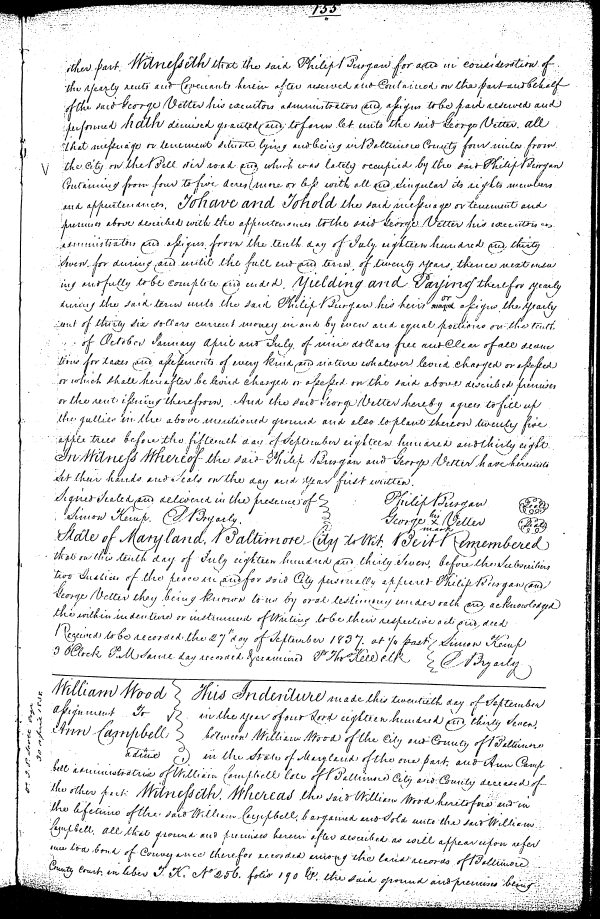 155
other part. Witnesseth that the said Philip Burgan for and in consideration of
the yearly rents and Covenants herein after reserved and Contained on the part and behalf
of the said George Vetter his executors administrators and assigns to be paid reserved and
performed hath demised granted and to farm let unto the said George Vetter, all
that messuage or tenement situate lying and being in Baltimore County four miles from
the City on the Bell air road and which was lately occupied by the said Philip Burgan
Containing from four to five acres more or less with all and singular its rights members
and appurtenances. To have and To hold the said messuage or tenement and
premises above described with the appurtenances to the said George Vetter his executors
administrators and assigns from the tenth day of July eighteen hundred and thirty
Seven for during and until the full end and term of twenty years, thence next ensu
ing and fully to be complete and ended, Yielding and Paying therefor yearly
during the said term unto the said Philip Burgan his heirs or assigns the yearly
rent of thirty six dollars current money in and by even and equal portions on the tenth
of October January April and July of nine dollars free and Clear of all deduc
tions for taxes and assessments of every kind and nature whatever levied charged or assessed
or which shall hereafter be levied charged or assessed on the said above described premises
or the rent issuing therefrom. And the said George Vetter hereby agrees to fill up
the gullies in the above mentioned ground and also to plant thereon twenty five
apple trees before the fifteenth day of September eighteen hundred and thirty eight
In Witness Whereof the said Philip Burgan and George Vetter have hereunto
Set their hands and Seals on the day and year first written.
Signed Sealed and delivered in the presence of Philip Burgan
Simon Kemp. Bryarly. George his x mark Vetter
State of Maryland, Baltimore City to Wit. Be it Remembered
that on this tenth day of July eighteen hundred and thirty Seven, before the Subscribers
two Justices of the peace in and for said City personally appeared Philip Burgan and
George Vetter they being known to us by oral testimony under oath and acknowledged
the within indenture or instrument of Writing to be their respective act and deed
Received to be recorded the 27th day of September 1837. at ½ past Simon Kemp
3 OClock P.M. Same day recorded & examined Pr Thos Kell clk Bryarly
William Wood This Indenture made this twentieth day of September
assignment To in the year of our Lord eighteen hundred and thirty Seven,
Ann Campbell between William Wood of the City and County of Baltimore
in the State of Maryland of the one part, and Ann Camp
bell administratrix of William Campbell late of Baltimore City and County deceased of
the other part. Witnesseth. Whereas the said William Wood heretofore and in
the lifetime of the said William Campbell, bargained and Sold unto the said William
Campbell, all that ground and premises herein after described as will appear upon refer
ence to a bond of Conveyance therefor recorded among the land records of Baltimore
County Court, in liber T. K. No 256. folio 190 &c. the said ground and premises being